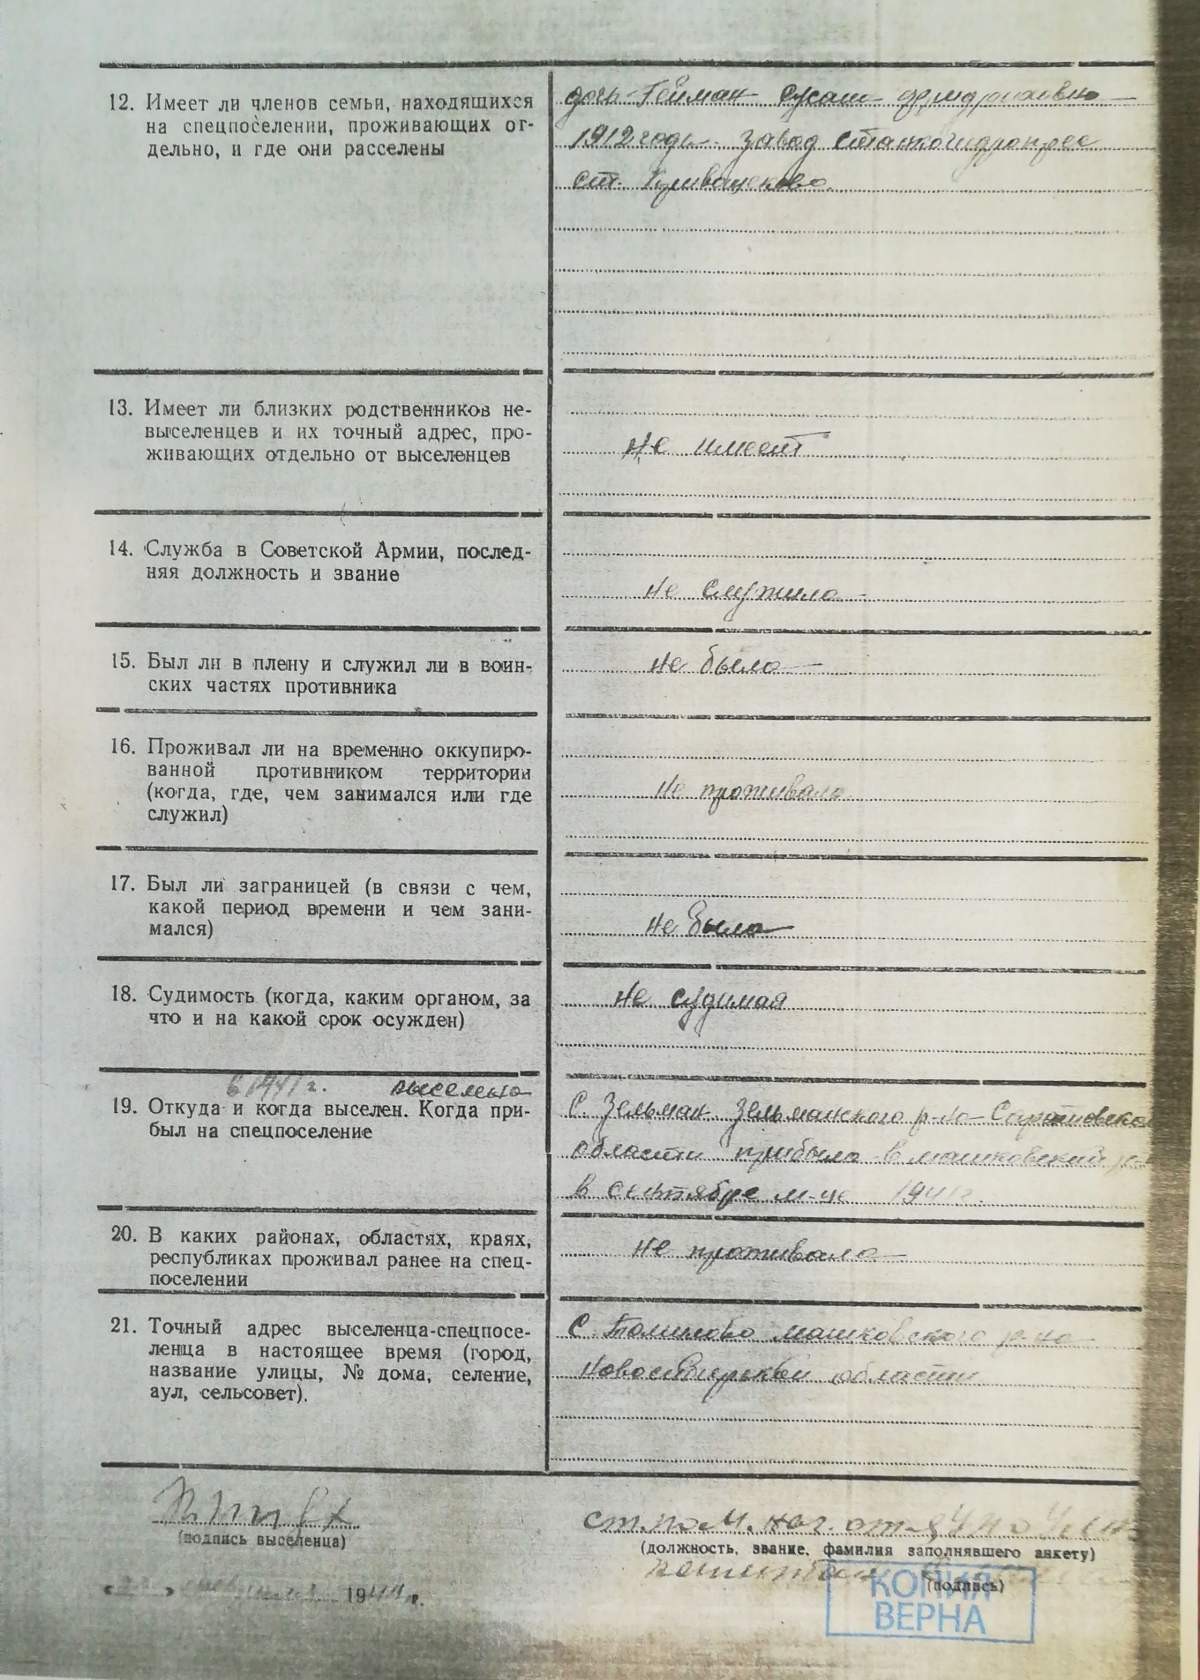 12. Имеет ли членов семьи, находящихся
на спецпоселении, проживающих от-
дельно, и где они расселены
дочь Гейман
1912 года завод
ст. Кривощеково
13. Имеет ли близких родственников не-
выселенцев и их точный адрес, про-
живающих отдельно от выселенцев
не имеет
14. Служба в Советской Армии, послед-
няя должность и звание
не служила
15. Был ли в плену и служил ли в воин-
ских частях противника
не была
16. Проживал ли на временно оккупиро-
ванной противником территории
(когда, где, чем занимался или где
служил)
не проживала
17. Был ли заграницей (в связи с чем,
какой период времени и чем зани-
мался)
не была
18. Судимость (когда, каким органом, за
что и на какой срок осужден)
не судимая
в 1941 г. выселена
19. Откуда и когда выселен. Когда при-
был на спецпоселение
с. Зельман Зельманского р-на Саратовской
области прибыла в машковский
в сентябре м-це 1941 г.
20. В каких районах, областях, краях,
республиках проживал ранее на спец-
поселении
не проживала
21. Точный адрес выселенца-спецпосе-
ленца в настоящее время (город,
название улицы, № дома, селение,
аул, сельсовет).
с. Томилово машковского р-на
Новосибирской области
(подпись выселенца)
ст. пом. нач.
(должность, звание, фамилия заполнявшего анкету)
(подпись)
КОПИЯ
ВЕРНА